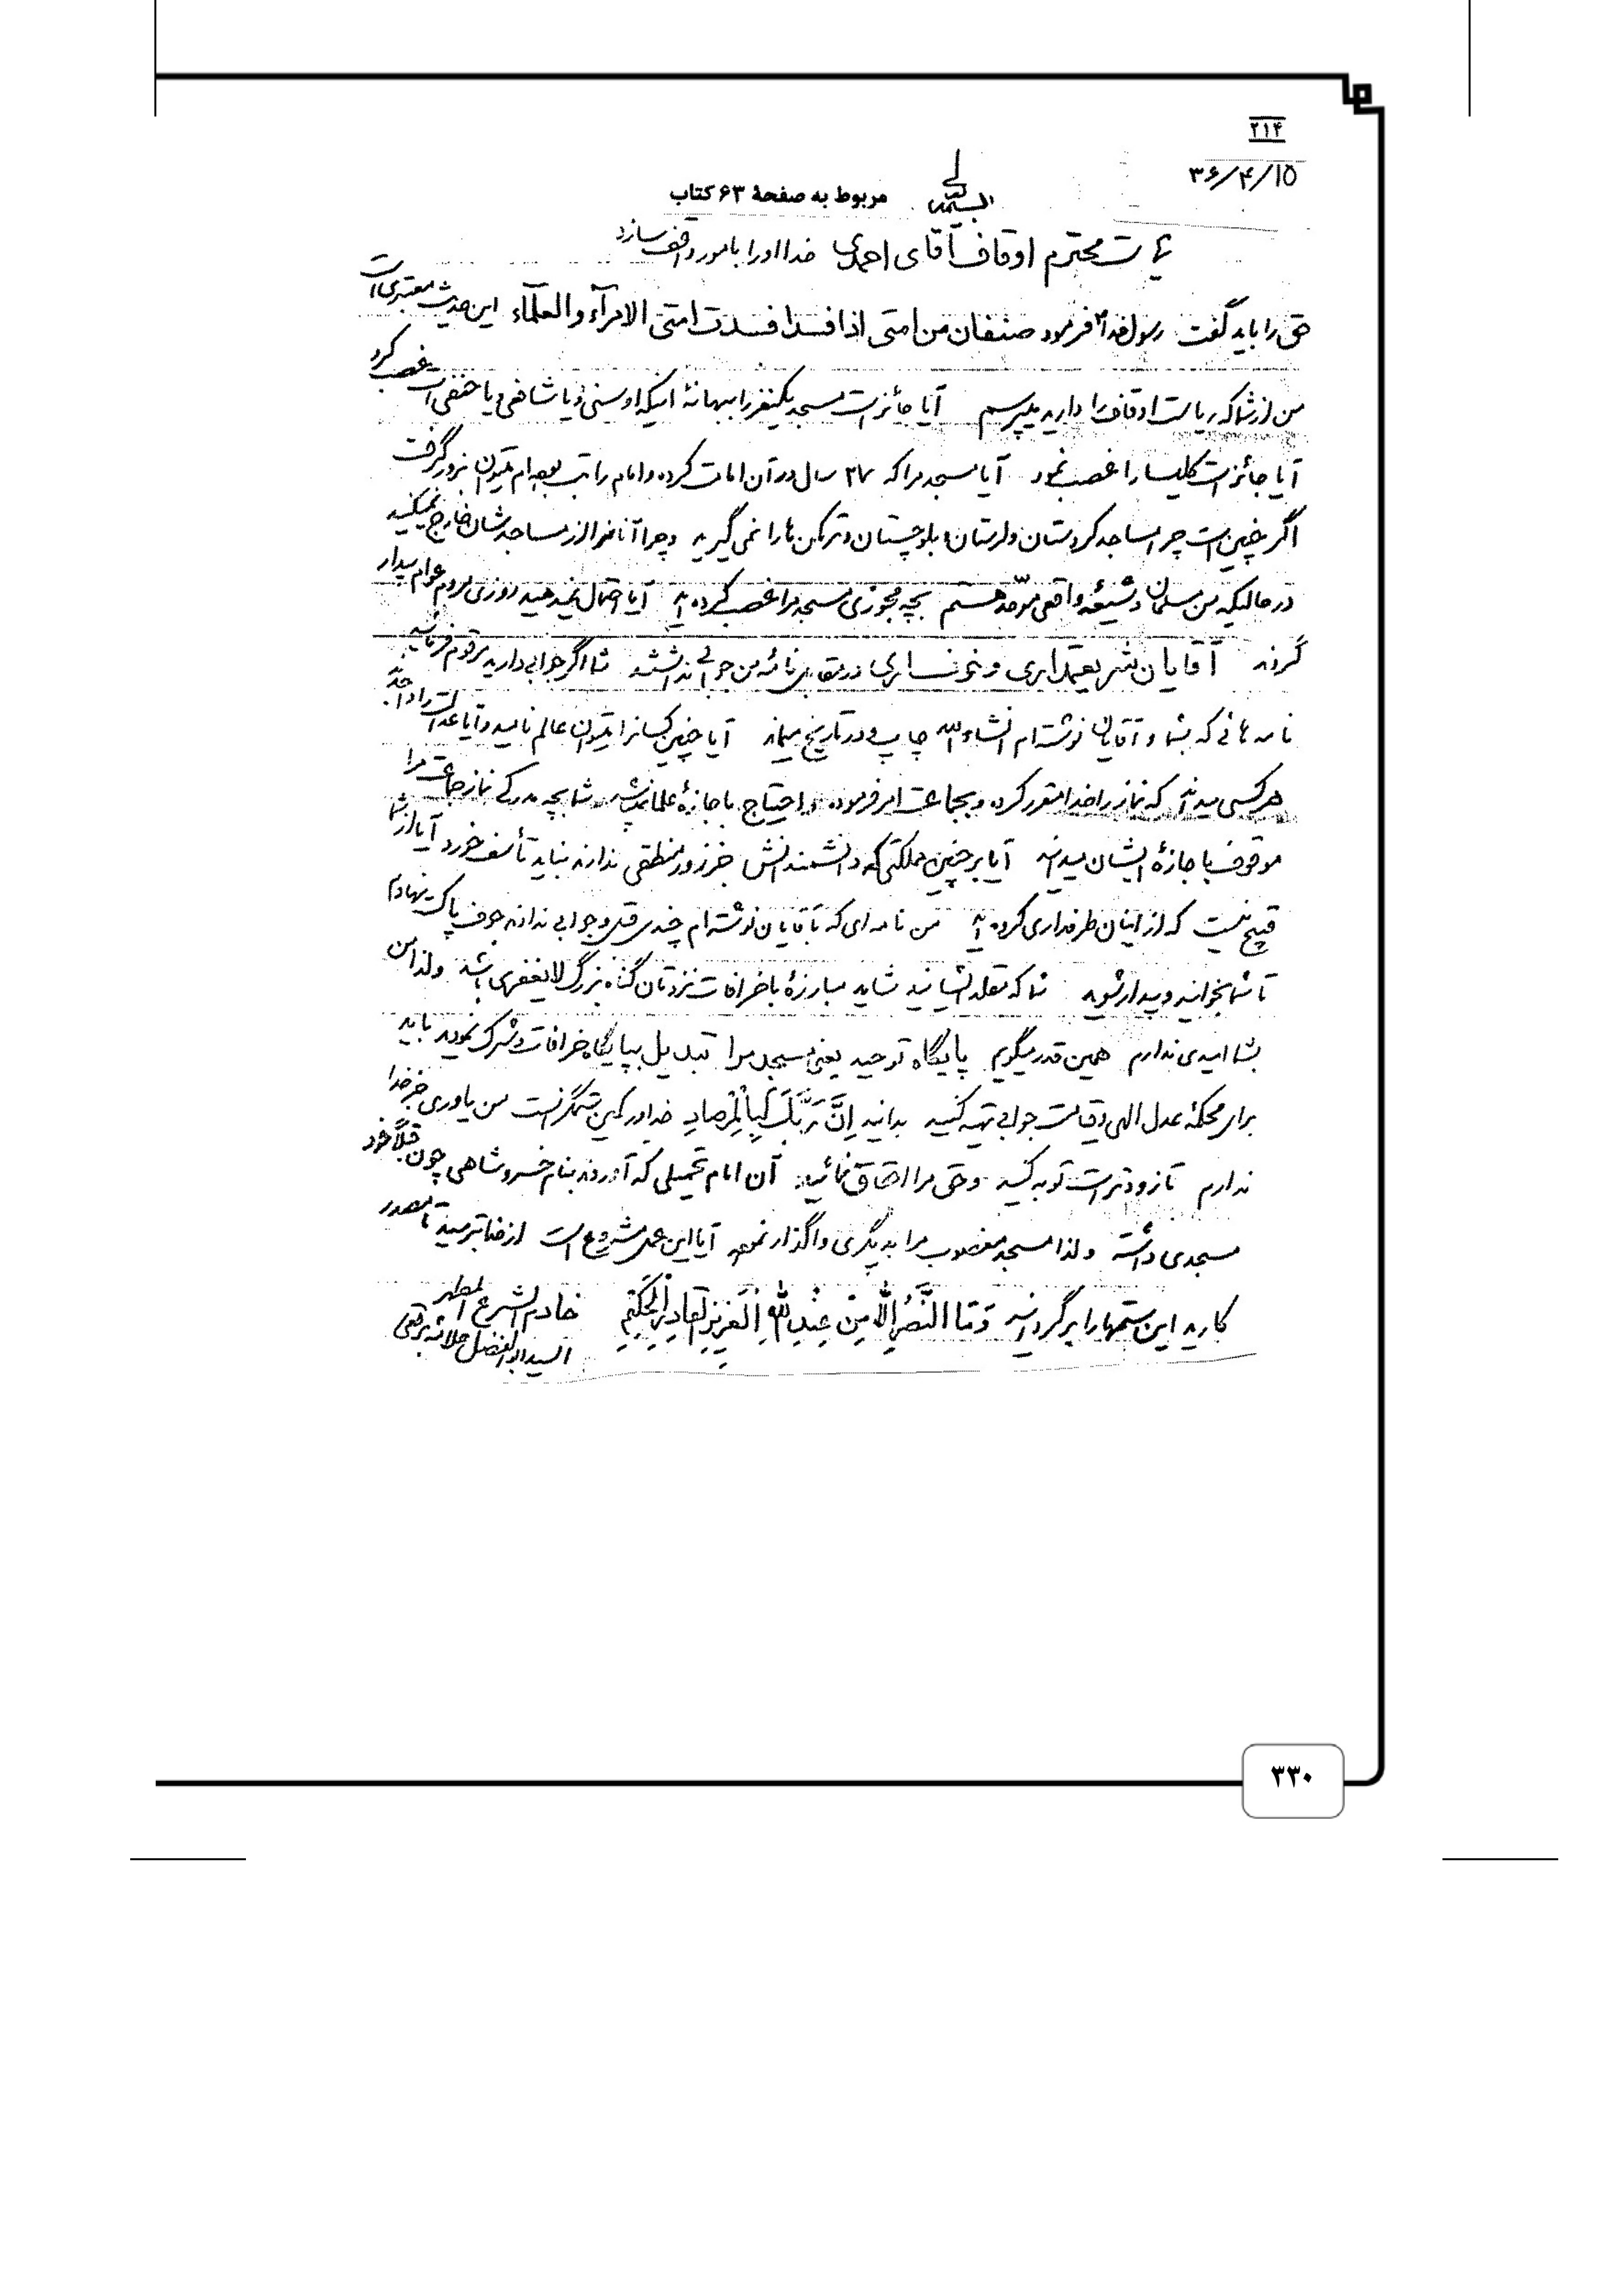 ۲۱۴
۳۶/۴/۱۵
مربوط به صفحهٔ ۶۳ کتاب
ریاست محترم اوقاف آقای احمدی خدا او را بامور واقف سازد
حق را باید گفت رسول خدا فرمود صنفان من امتی اذا فسدا فسدت امتی الامرآء والعلمآء این حدیث معتبری است
من از شما که ریاست اوقاف را دارید میپرسم آیا جائز است مسجد یکنفر را ببهانهٔ اینکه او سنی و یا شافعی و یا حنفی است غصب کرد
آیا جائز است کلیسا را غصب نمود آیا مسجد مرا که ۲۷ سال در آن امامت کرده و امام راتب بوده‌ام میتوان بزور گرفت
اگر چنین است چرا مساجد کردستان ولرستان و بلوچستان و ترکمن‌ها را نمی گیرید و چرا آنانرا از مساجدشان خارج نمیکنید
در حالیکه من مسلمان و شیعه واقعی موّحد هستم بچه مجوزی مسجد مرا غصب کرده اید آیا احتمال نمیدهید روزی مردم عوام بیدار
گردند آقایان شریعتمداری و خونساری در مقابل نامه من جوابی نداشتند شما اگر جوابی دارید مرقوم فرمائید
نامه هائی که بشما و آقایان نوشته‌ام انشاءالله چاپ و در تاریخ میماند آیا چنین کسانرا میتوان عالم نامید و آیا عدالت را واجدند
هر کسی میداند که نماز را خدا مقرر کرده و بجماعت امر فرموده و احتیاج باجازهٔ علما نمیباشد شما بچه مدرکی نماز جماعت مرا
موقوف با جازهٔ ایشان میدانید آیا بر چنین مملکتی که دانشمندانش جز زور منطقی ندارند نباید تأسف خورد آیا از شما
قبیح نیست که از اینان طرفداری کرده اید من نامه ای که بآقایان نوشته‌ام چندی قبل و جوابی ندارند جوف پاکت نهادم
تا شما بخوانید و بیدار شوید شما که مقلد ایشانید شاید مبارزهٔ با خرافات نزدتان گناه بزرگ لایغفری باشد ولذا من
بشما امیدی ندارم همین قدر میگویم پایگاه توحید یعنی مسجد مرا تبدیل بپایگاه خرافات و شرک نمودید باید
برای محکمهٔ عدل الهی و قیامت جوابی تهیه کنید بدانید اِنَّ رَبَّکَ لَبِالْمِرْصادِ خدا در کمین ستمگر است من یاوری جز خدا
ندارم تا زودتر است توبه کنید و حق مرا احقاق نمائید آن امام تحمیلی که آوردند بنام خسروشاهی چون قبلاً خود
مسجدی داشته ولذا مسجد مغصوب مرا بدیگری واگذار نموده آیا این عمل مشروع است از خدا بترسید تا مصدر
کارید این ستمها را برگردانید وَمَا النَّصْرُ اِلّا مِنْ عِنْدِ اللّٰهِ الْعَزیزِ القادِرِ الْحَکیم خادم الشرع المطهر
السید ابوالفضل علامه برقعی
۳۳۰